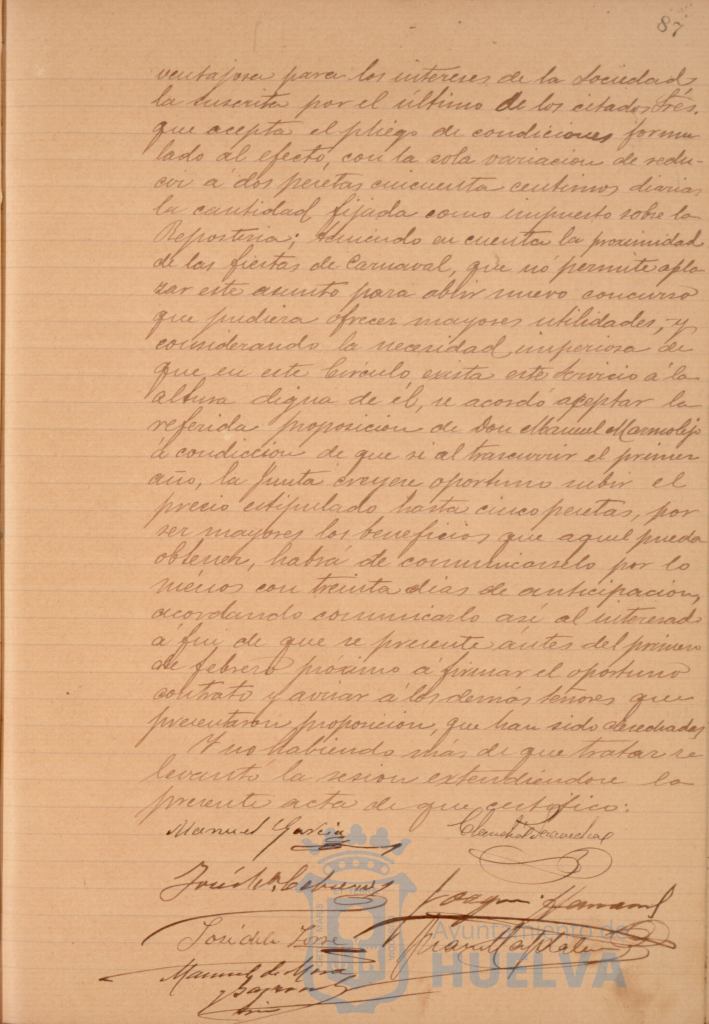 87
ventajosa para los intereses de la Sociedad,
la suscrita por el último de los citados Sres.
que acepta el pliego de condiciones formu-
lado al efecto, con la sola variacion de redu-
cir á dos pesetas cincuenta centimos diarias
la cantidad fijada como impuesto sobre la
Reposteria; teniendo en cuenta la proximidad
de las fiestas de Carnaval, que nó permite apla
zar este asunto para abrir nuevo concurso
que pudiera ofrecer mayores utilidades, y
considerando la necesidad imperiosa de
que en este Círculo exista este servicio á la
altura digna de él, se acordó aceptar la
referida proposicion de Don Manuel Marmolejo
á condiccion de que si al trascurrir el primer
año, la Junta creyere oportuno subir el
precio estipulado hasta cinco pesetas, por
ser mayores los beneficios que aquel pueda
obtener, habrá de comunicarselo por lo
ménos con treinta dias de anticipacion,
acordando comunicarlo así al interesado
a fin de que se presente ántes del primero
de febrero próximo á firmar el oportuno
contrato y avisar á los demás señores que
presentaron proposicion, que han sido desechadas
Y no habiendo mas de que tratar se
levantó la sesion extendiéndose la
presente acta de que certifico:
Manuel García
José
Joaquin
José de la Torre
Manuel de Mora
Ayuntamiento de
HUELVA